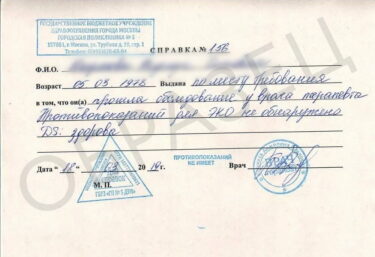 ГОСУДАРСТВЕННОЕ БЮДЖЕТНОЕ УЧРЕЖДЕНИЕ
ЗДРАВООХРАНЕНИЯ ГОРОДА МОСКВЫ
ГОРОДСКАЯ ПОЛИКЛИНИКА № 5
г. Москва, ул. Трубная д.
СПРАВКА № 156
Ф.И.О.
Возраст 05 03 1978 Выдана по месту требования
в том, что он(а) прошла обследование у врача терапевта
Противопоказаний для ЭКО не обнаружено
DS: здорова
ПРОТИВОПОКАЗАНИЙ
НЕ ИМЕЕТ
Дата " 18 " 20 г. Врач
М. П.
ВРАЧ
ОБРАЗЕЦ